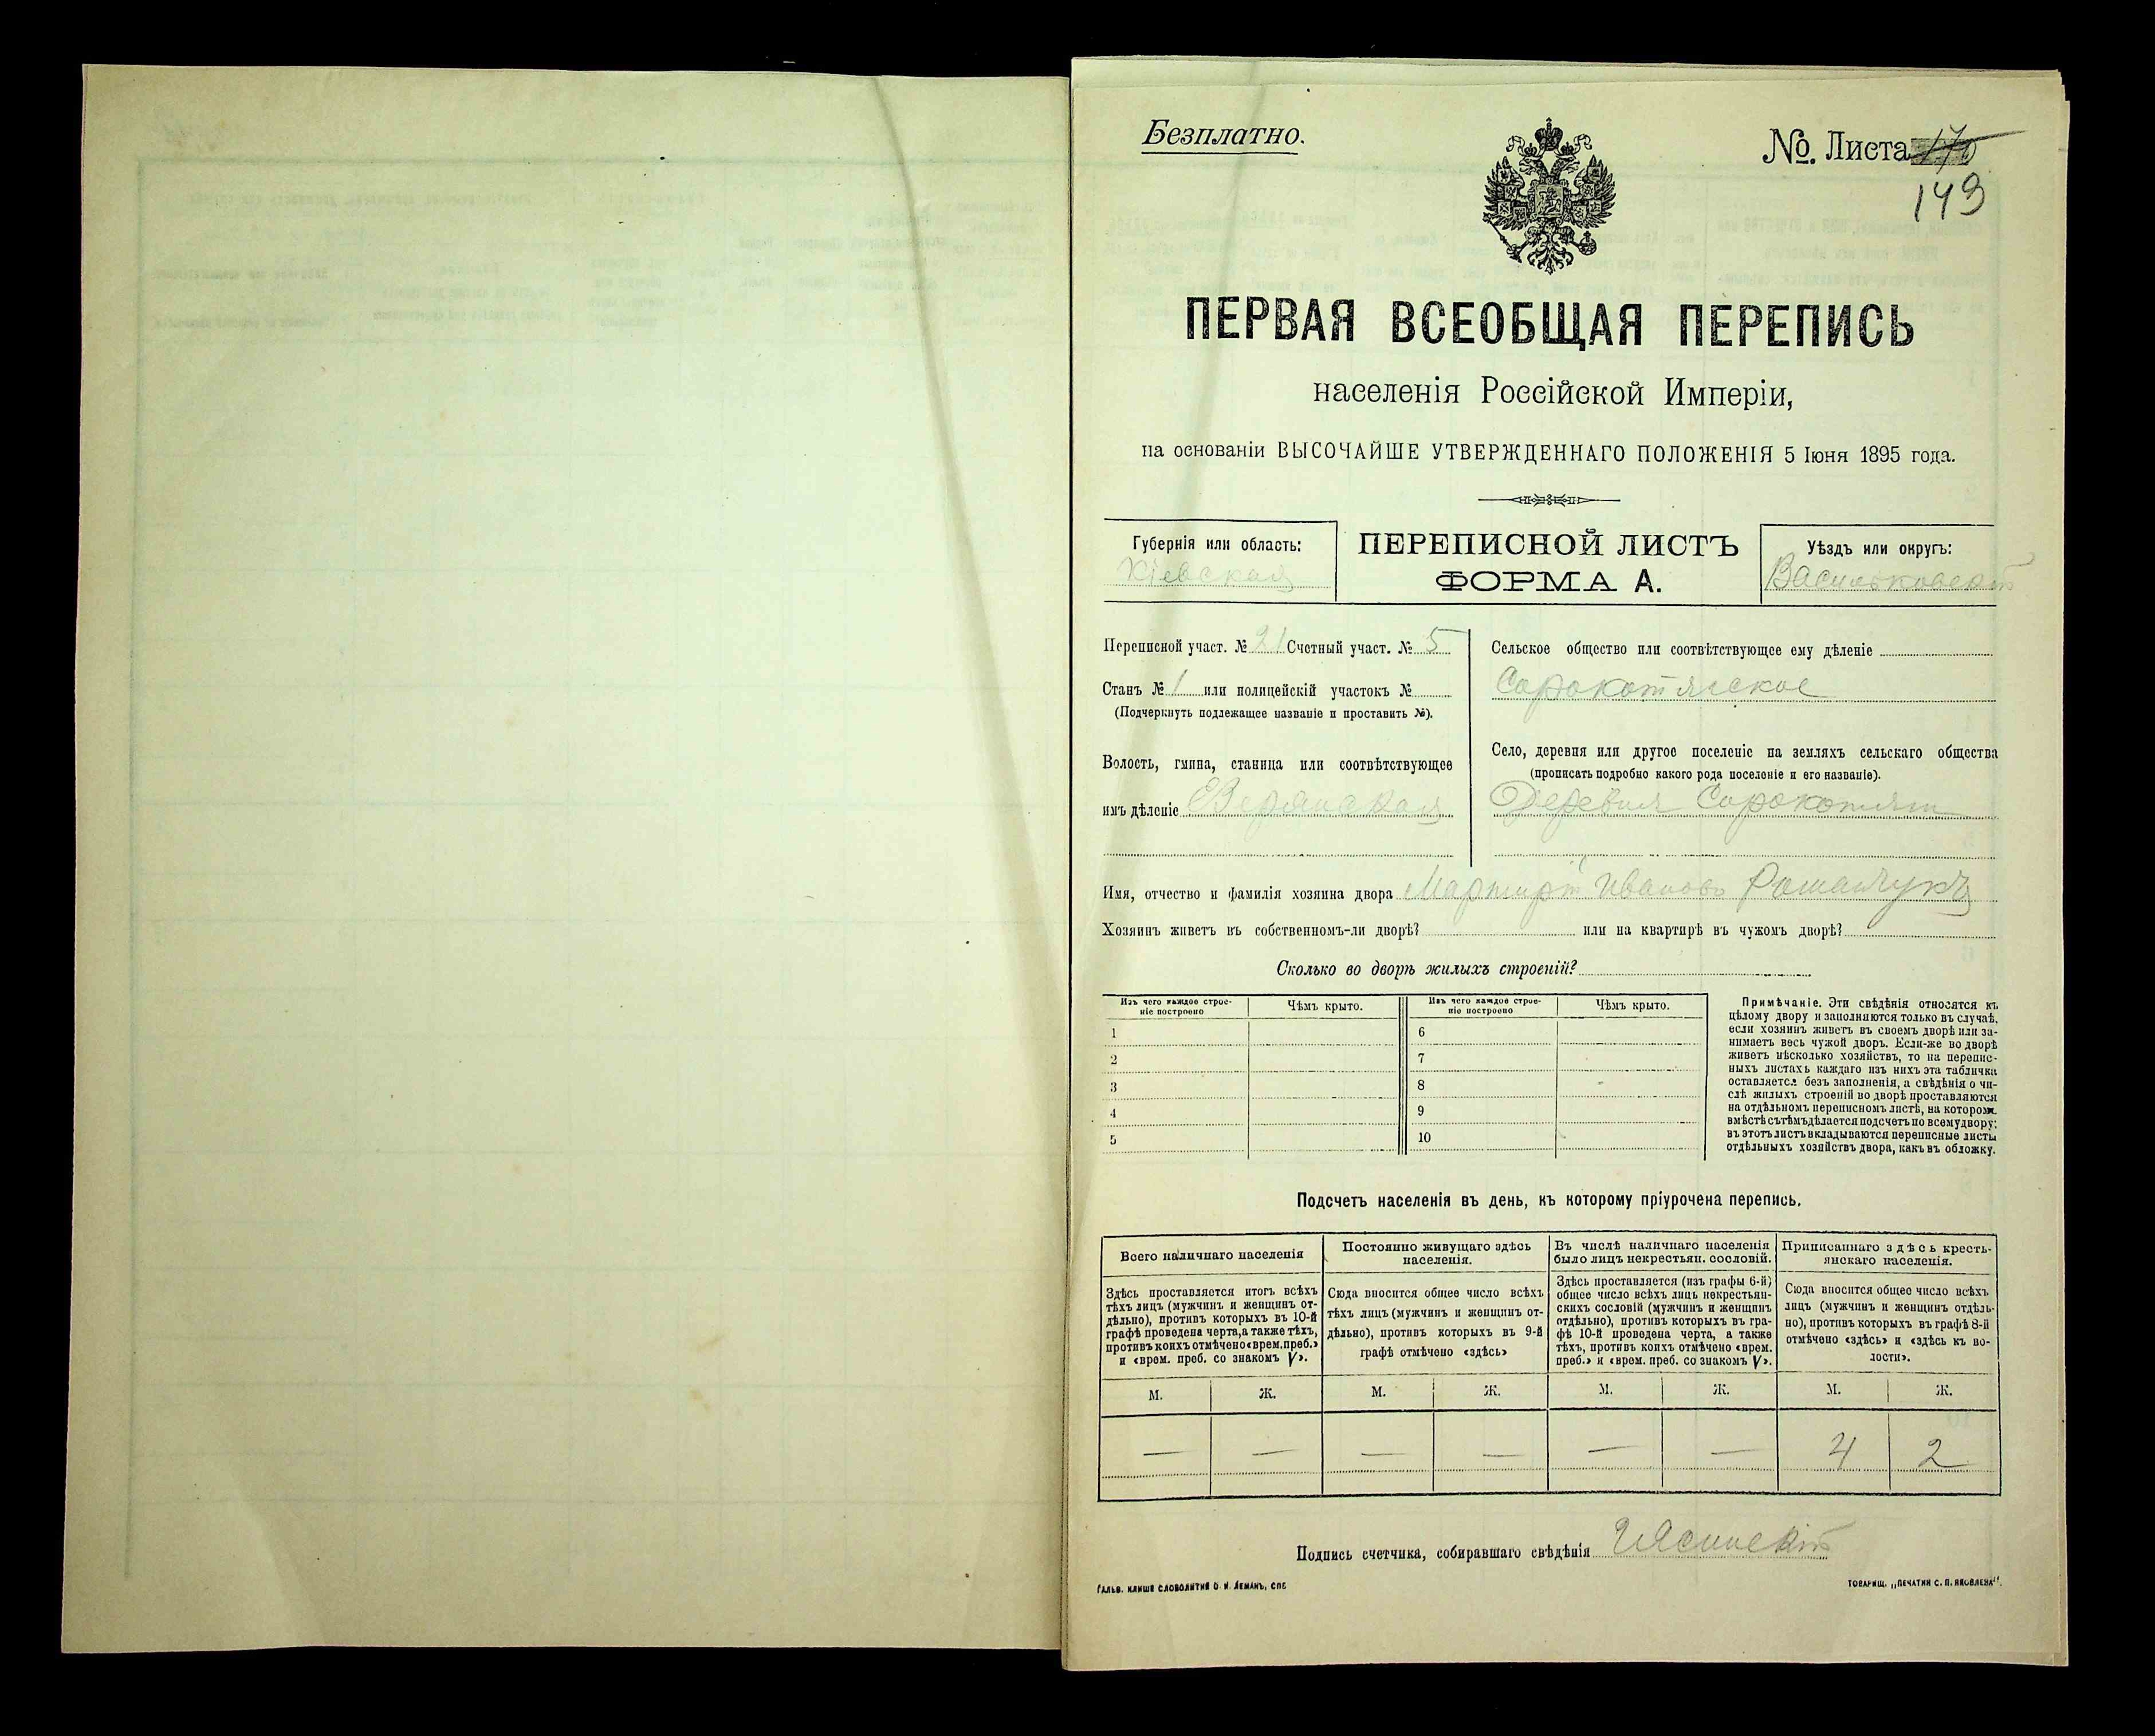 Безплатно.
№. Листа 170
149
ПЕРВАЯ ВСЕОБЩАЯ ПЕРЕПИСЬ
населенія Россійской Имперіи,
на основаніи ВЫСОЧАЙШЕ УТВЕРЖДЕННАГО ПОЛОЖЕНІЯ 5 Іюня 1895 года.
Губернія или область:
Кіевская
ПЕРЕПИСНОЙ ЛИСТЪ
ФОРМА А.
Уѣздъ или округъ:
Васильковскій
Переписной участ. № 21 Счетный участ. № 5
Станъ № 1 или полицейскій участокъ №
(Подчеркнуть подлежащее названіе и проставить №).
Волость, гмина, станица или соотвѣтствующее
имъ дѣленіе
Сельское общество или соотвѣтствующее ему дѣленіе
Сорокотягское
Село, деревня или другое поселеніе на земляхъ сельскаго общества
(прописать подробно какого рода поселеніе и его названіе).
Деревня Сорокотяги
Имя, отчество и фамилія хозяина двора Мартирій Ивановъ Ромащукъ
Хозяинъ живетъ въ собственномъ-ли дворѣ? или на квартирѣ въ чужомъ дворѣ?
Сколько во дворѣ жилыхъ строеній?
Изъ чего каждое строе-
ніе построено
Чѣмъ крыто.
1
2
3
4
5
Изъ чего каждое строе-
ніе построено
Чѣмъ крыто.
6
7
8
9
10
Примѣчаніе. Эти свѣдѣнія относятся къ
цѣлому двору и заполняются только въ случаѣ,
если хозяинъ живетъ въ своемъ дворѣ или за-
нимаетъ весь чужой дворъ. Если-же во дворѣ
живетъ нѣсколько хозяйствъ, то на перепис-
ныхъ листахъ каждаго изъ нихъ эта табличка
оставляется безъ заполненія, а свѣдѣнія о чи-
слѣ жилыхъ строеній во дворѣ проставляются
на отдѣльномъ переписномъ листѣ, на которомъ
вмѣстѣ съ тѣмъ дѣлается подсчетъ по всему двору;
въ этотъ листъ вкладываются переписные листы
отдѣльныхъ хозяйствъ двора, какъ въ обложку.
Подсчетъ населенія въ день, къ которому пріурочена перепись.
Всего наличнаго населенія
Здѣсь проставляется итогъ всѣхъ
тѣхъ лицъ (мужчинъ и женщинъ от-
дѣльно), противъ которыхъ въ 10-й
графѣ проведена черта, а также тѣхъ,
противъ коихъ отмѣчено «врем. преб.»
и «врем. преб. со знакомъ V».
Постоянно живущаго здѣсь
населенія.
Сюда вносится общее число всѣхъ
тѣхъ лицъ (мужчинъ и женщинъ от-
дѣльно), противъ которыхъ въ 9-й
графѣ отмѣчено «здѣсь»
Въ числѣ наличнаго населенія
было лицъ некрестьян. сословій.
Здѣсь проставляется (изъ графы 6-й)
общее число всѣхъ лицъ некрестьян-
скихъ сословій (мужчинъ и женщинъ
отдѣльно), противъ которыхъ въ гра-
фѣ 10-й проведена черта, а также
тѣхъ, противъ коихъ отмѣчено «врем.
преб.» и «врем. преб. со знакомъ V».
Приписаннаго здѣсь кресть-
янскаго населенія.
Сюда вносится общее число всѣхъ
лицъ (мужчинъ и женщинъ отдѣль-
но), противъ которыхъ въ графѣ 8-й
отмѣчено «здѣсь» и «здѣсь къ во-
лости».
М. Ж. М. Ж. М. Ж. М. Ж.
— — — — — — 4 2
Подпись счетчика, собиравшаго свѣдѣнія Ясинскій
Гальв. клише словолитни О. И. Леманъ, СПБ
ТОВАРИЩ. „ПЕЧАТНИ С. П. ЯКОВЛЕВА".